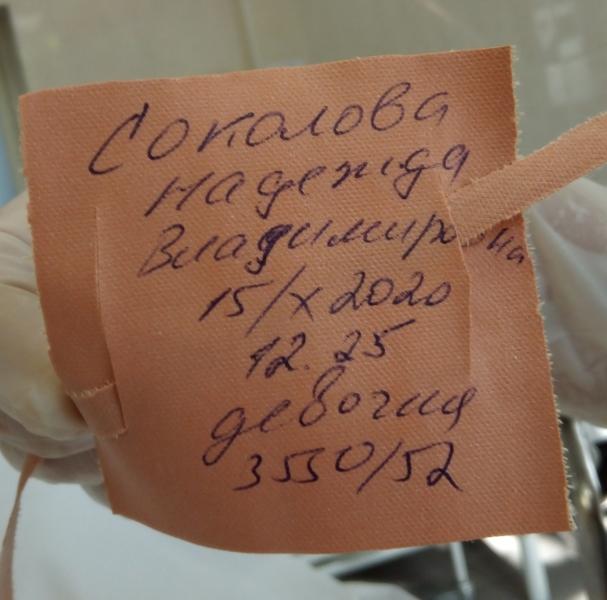 Соколова
Надежда
Владимировна
15/X 2020
12.25
девочка
3550/52